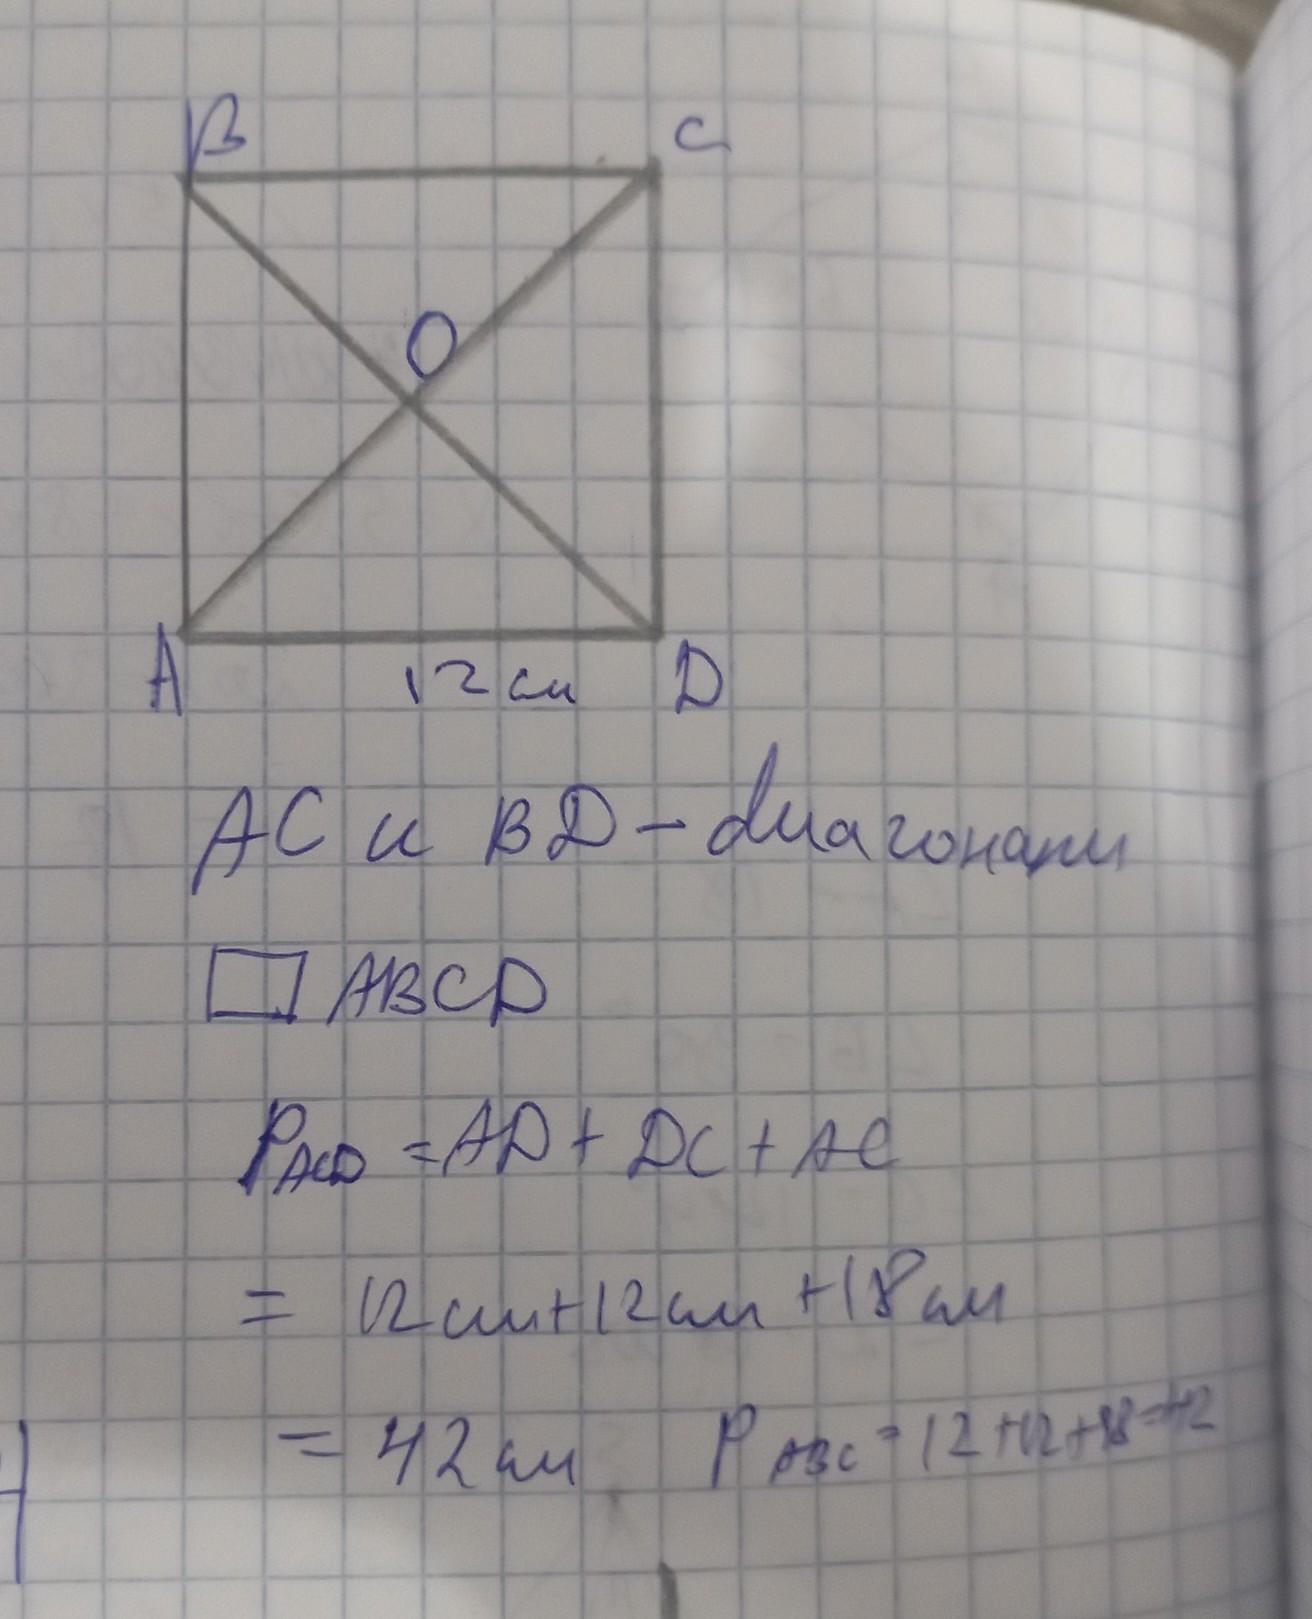 B C
O
A 12 см D
AC и BD - диагонали
□ ABCD
P ACD = AD + DC + AC
= 12 см + 12 см + 18 см
= 42 см P ABC = 12 + 12 + 18 = 42